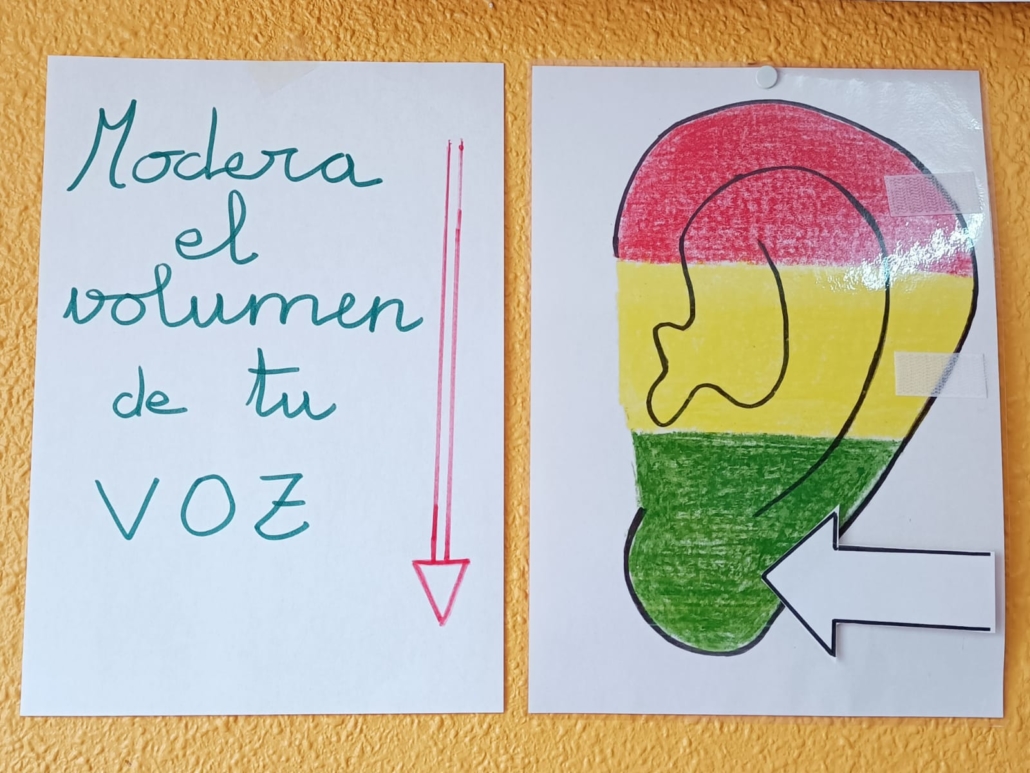 Modera
el
volumen
de tu
VOZ